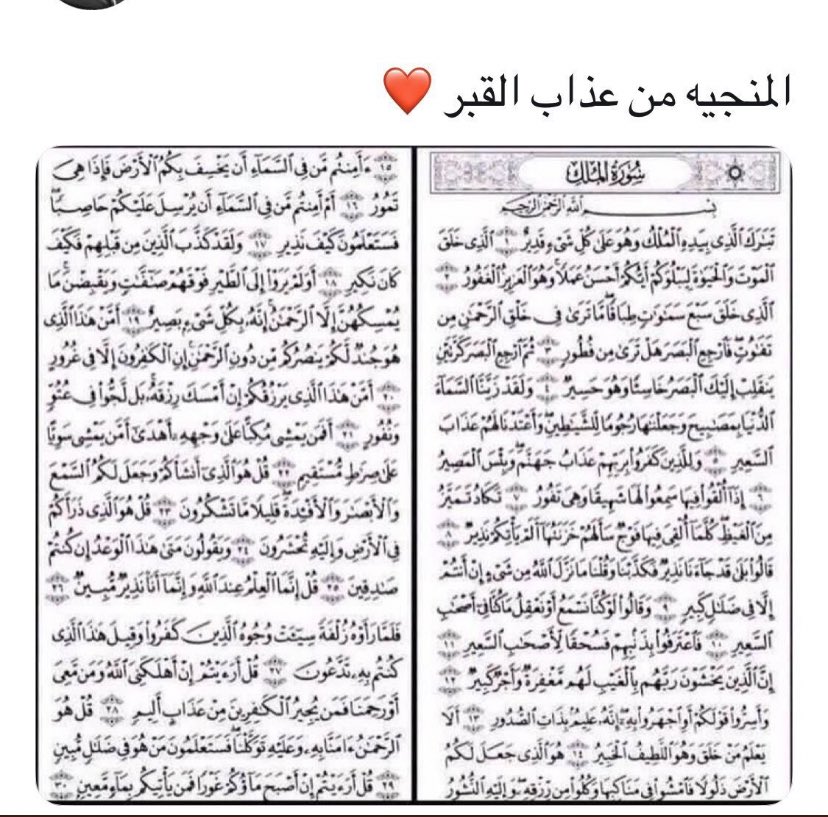 المنجيه من عذاب القبر ❤️
سُورَةُ المُلْكِ
بِسْمِ اللَّهِ الرَّحْمَٰنِ الرَّحِيمِ
تَبَٰرَكَ ٱلَّذِى بِيَدِهِ ٱلْمُلْكُ وَهُوَ عَلَىٰ كُلِّ شَىْءٍ قَدِيرٌ ١ ٱلَّذِى خَلَقَ
ٱلْمَوْتَ وَٱلْحَيَوٰةَ لِيَبْلُوَكُمْ أَيُّكُمْ أَحْسَنُ عَمَلًا وَهُوَ ٱلْعَزِيزُ ٱلْغَفُورُ ٢
ٱلَّذِى خَلَقَ سَبْعَ سَمَٰوَٰتٍ طِبَاقًا مَّا تَرَىٰ فِى خَلْقِ ٱلرَّحْمَٰنِ مِن
تَفَٰوُتٍ فَٱرْجِعِ ٱلْبَصَرَ هَلْ تَرَىٰ مِن فُطُورٍ ٣ ثُمَّ ٱرْجِعِ ٱلْبَصَرَ كَرَّتَيْنِ
يَنقَلِبْ إِلَيْكَ ٱلْبَصَرُ خَاسِئًا وَهُوَ حَسِيرٌ ٤ وَلَقَدْ زَيَّنَّا ٱلسَّمَآءَ
ٱلدُّنْيَا بِمَصَٰبِيحَ وَجَعَلْنَٰهَا رُجُومًا لِّلشَّيَٰطِينِ وَأَعْتَدْنَا لَهُمْ عَذَابَ
ٱلسَّعِيرِ ٥ وَلِلَّذِينَ كَفَرُوا۟ بِرَبِّهِمْ عَذَابُ جَهَنَّمَ وَبِئْسَ ٱلْمَصِيرُ
٦ إِذَآ أُلْقُوا۟ فِيهَا سَمِعُوا۟ لَهَا شَهِيقًا وَهِىَ تَفُورُ ٧ تَكَادُ تَمَيَّزُ
مِنَ ٱلْغَيْظِ كُلَّمَآ أُلْقِىَ فِيهَا فَوْجٌ سَأَلَهُمْ خَزَنَتُهَآ أَلَمْ يَأْتِكُمْ نَذِيرٌ ٨
قَالُوا۟ بَلَىٰ قَدْ جَآءَنَا نَذِيرٌ فَكَذَّبْنَا وَقُلْنَا مَا نَزَّلَ ٱللَّهُ مِن شَىْءٍ إِنْ أَنتُمْ
إِلَّا فِى ضَلَٰلٍ كَبِيرٍ ٩ وَقَالُوا۟ لَوْ كُنَّا نَسْمَعُ أَوْ نَعْقِلُ مَا كُنَّا فِىٓ أَصْحَٰبِ
ٱلسَّعِيرِ ١٠ فَٱعْتَرَفُوا۟ بِذَنۢبِهِمْ فَسُحْقًا لِّأَصْحَٰبِ ٱلسَّعِيرِ ١١
إِنَّ ٱلَّذِينَ يَخْشَوْنَ رَبَّهُم بِٱلْغَيْبِ لَهُم مَّغْفِرَةٌ وَأَجْرٌ كَبِيرٌ ١٢
وَأَسِرُّوا۟ قَوْلَكُمْ أَوِ ٱجْهَرُوا۟ بِهِۦٓ إِنَّهُۥ عَلِيمٌۢ بِذَاتِ ٱلصُّدُورِ ١٣ أَلَا
يَعْلَمُ مَنْ خَلَقَ وَهُوَ ٱللَّطِيفُ ٱلْخَبِيرُ ١٤ هُوَ ٱلَّذِى جَعَلَ لَكُمُ
ٱلْأَرْضَ ذَلُولًا فَٱمْشُوا۟ فِى مَنَاكِبِهَا وَكُلُوا۟ مِن رِّزْقِهِۦ وَإِلَيْهِ ٱلنُّشُورُ
١٥ ءَأَمِنتُم مَّن فِى ٱلسَّمَآءِ أَن يَخْسِفَ بِكُمُ ٱلْأَرْضَ فَإِذَا هِىَ
تَمُورُ ١٦ أَمْ أَمِنتُم مَّن فِى ٱلسَّمَآءِ أَن يُرْسِلَ عَلَيْكُمْ حَاصِبًا
فَسَتَعْلَمُونَ كَيْفَ نَذِيرِ ١٧ وَلَقَدْ كَذَّبَ ٱلَّذِينَ مِن قَبْلِهِمْ فَكَيْفَ
كَانَ نَكِيرِ ١٨ أَوَلَمْ يَرَوْا۟ إِلَى ٱلطَّيْرِ فَوْقَهُمْ صَٰٓفَّٰتٍ وَيَقْبِضْنَ مَا
يُمْسِكُهُنَّ إِلَّا ٱلرَّحْمَٰنُ إِنَّهُۥ بِكُلِّ شَىْءٍۭ بَصِيرٌ ١٩ أَمَّنْ هَٰذَا ٱلَّذِى
هُوَ جُندٌ لَّكُمْ يَنصُرُكُم مِّن دُونِ ٱلرَّحْمَٰنِ إِنِ ٱلْكَٰفِرُونَ إِلَّا فِى غُرُورٍ
٢٠ أَمَّنْ هَٰذَا ٱلَّذِى يَرْزُقُكُمْ إِنْ أَمْسَكَ رِزْقَهُۥ بَل لَّجُّوا۟ فِى عُتُوٍّ
وَنُفُورٍ ٢١ أَفَمَن يَمْشِى مُكِبًّا عَلَىٰ وَجْهِهِۦٓ أَهْدَىٰٓ أَمَّن يَمْشِى سَوِيًّا
عَلَىٰ صِرَٰطٍ مُّسْتَقِيمٍ ٢٢ قُلْ هُوَ ٱلَّذِىٓ أَنشَأَكُمْ وَجَعَلَ لَكُمُ ٱلسَّمْعَ
وَٱلْأَبْصَٰرَ وَٱلْأَفْـِٔدَةَ قَلِيلًا مَّا تَشْكُرُونَ ٢٣ قُلْ هُوَ ٱلَّذِى ذَرَأَكُمْ
فِى ٱلْأَرْضِ وَإِلَيْهِ تُحْشَرُونَ ٢٤ وَيَقُولُونَ مَتَىٰ هَٰذَا ٱلْوَعْدُ إِن كُنتُمْ
صَٰدِقِينَ ٢٥ قُلْ إِنَّمَا ٱلْعِلْمُ عِندَ ٱللَّهِ وَإِنَّمَآ أَنَا۠ نَذِيرٌ مُّبِينٌ ٢٦
فَلَمَّا رَأَوْهُ زُلْفَةً سِيٓـَٔتْ وُجُوهُ ٱلَّذِينَ كَفَرُوا۟ وَقِيلَ هَٰذَا ٱلَّذِى
كُنتُم بِهِۦ تَدَّعُونَ ٢٧ قُلْ أَرَءَيْتُمْ إِنْ أَهْلَكَنِىَ ٱللَّهُ وَمَن مَّعِىَ
أَوْ رَحِمَنَا فَمَن يُجِيرُ ٱلْكَٰفِرِينَ مِنْ عَذَابٍ أَلِيمٍ ٢٨ قُلْ هُوَ
ٱلرَّحْمَٰنُ ءَامَنَّا بِهِۦ وَعَلَيْهِ تَوَكَّلْنَا فَسَتَعْلَمُونَ مَنْ هُوَ فِى ضَلَٰلٍ مُّبِينٍ
٢٩ قُلْ أَرَءَيْتُمْ إِنْ أَصْبَحَ مَآؤُكُمْ غَوْرًا فَمَن يَأْتِيكُم بِمَآءٍ مَّعِينٍۭ ٣٠